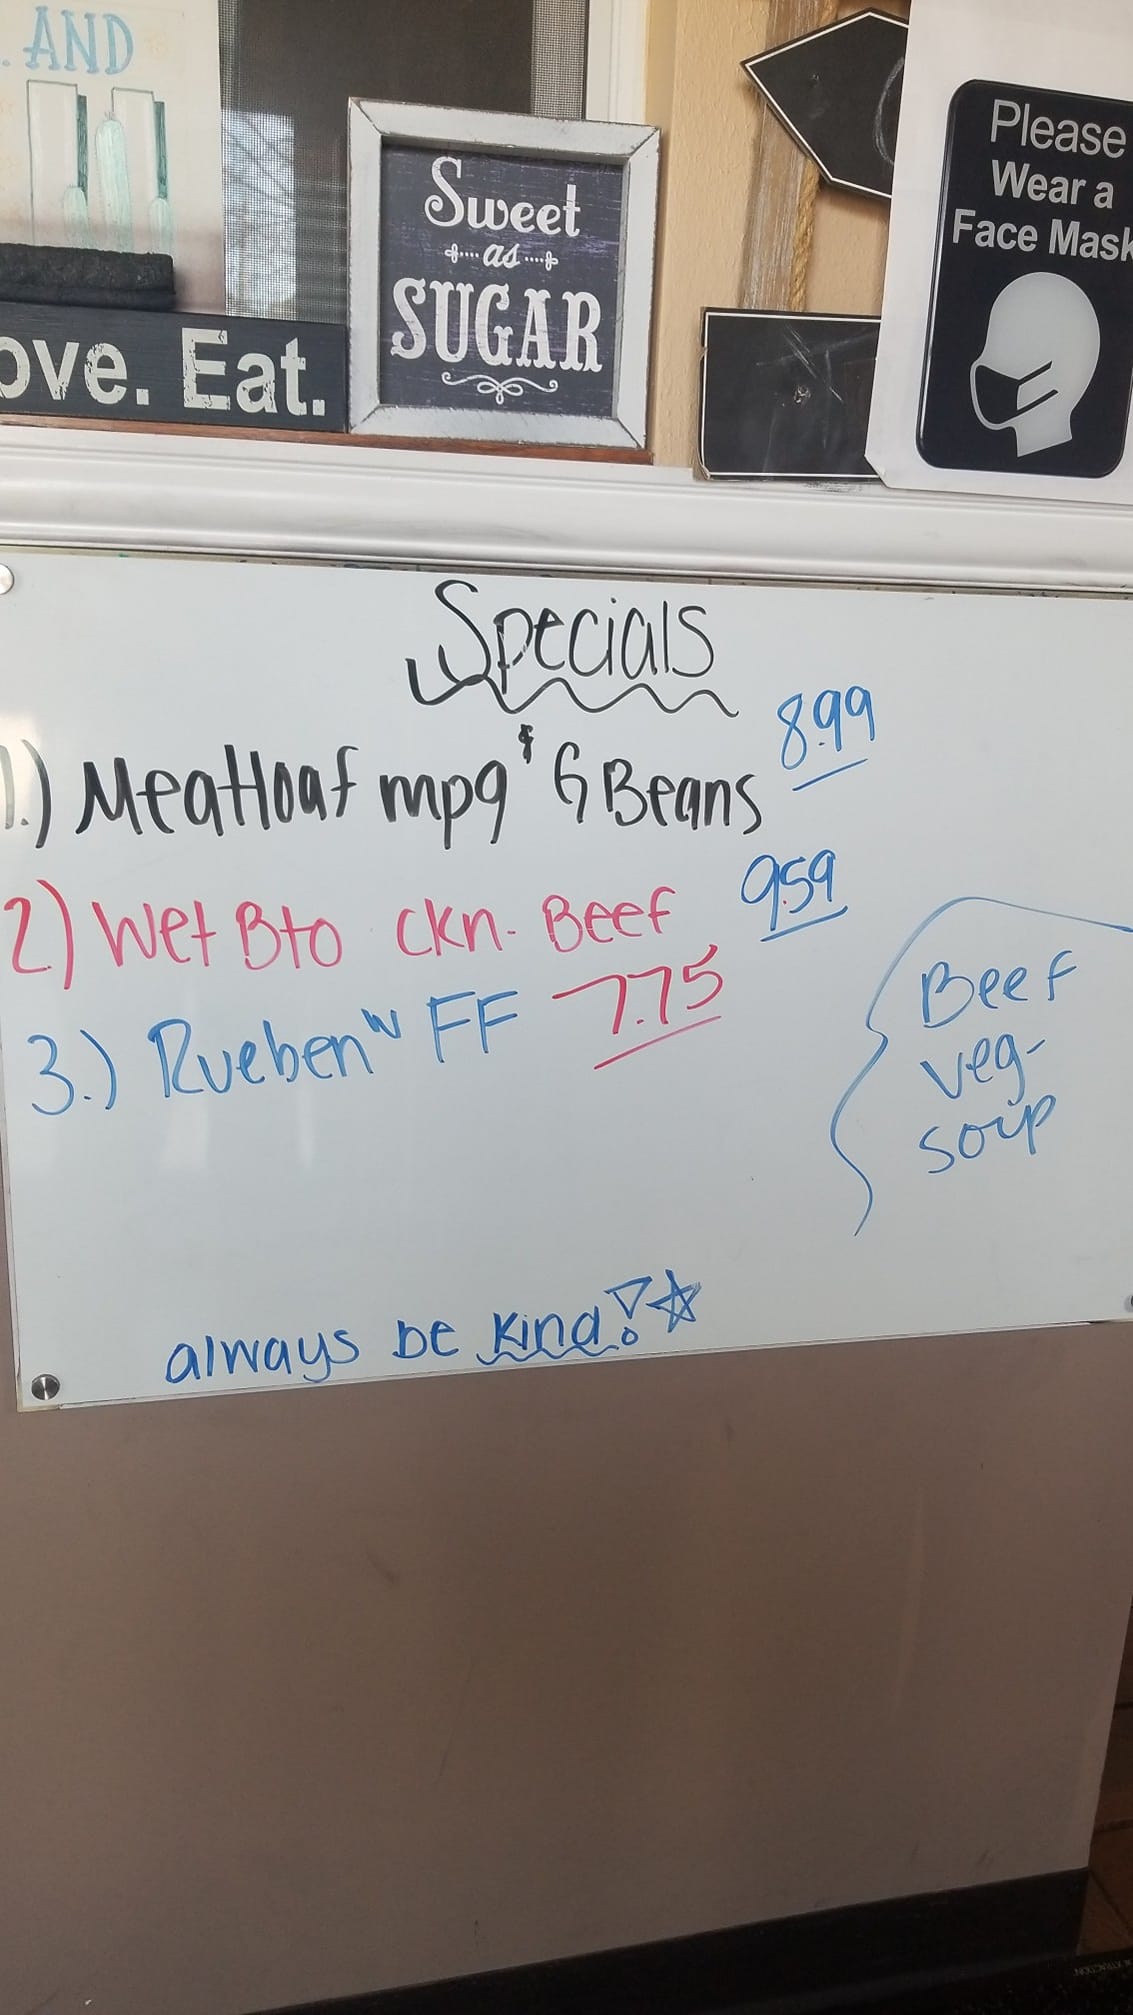 . AND
ove. Eat.
Sweet
as
SUGAR
Please
Wear a
Face Mask
Specials
1.) Meatloaf mpg & G Beans 8.99
2.) Wet Bto ckn. Beef 9.59
3.) Rueben w FF 7.75
Beef
veg-
soup
always be kind!